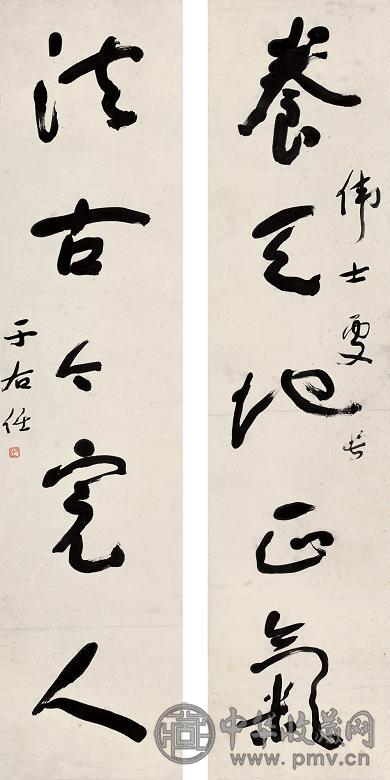 養天地正氣
偉士處長
法古今完人
于右任
中华收藏网
www.pmv.cn